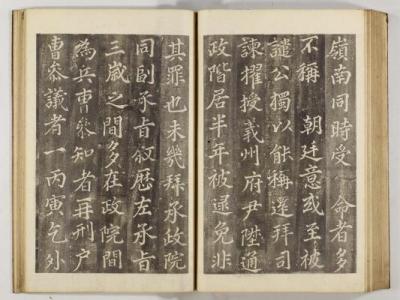 嶺南同時受 命者多
不稱 朝廷意或至被
譴公獨以能稱還拜司
諫擢授義州府尹陞通
政階居半年被逮免非
其罪也未幾拜承政院
同副承旨叙歷左承旨
三歲之間多在政院間
為兵曹參知者再刑戶
曹參議者一丙寅乞外